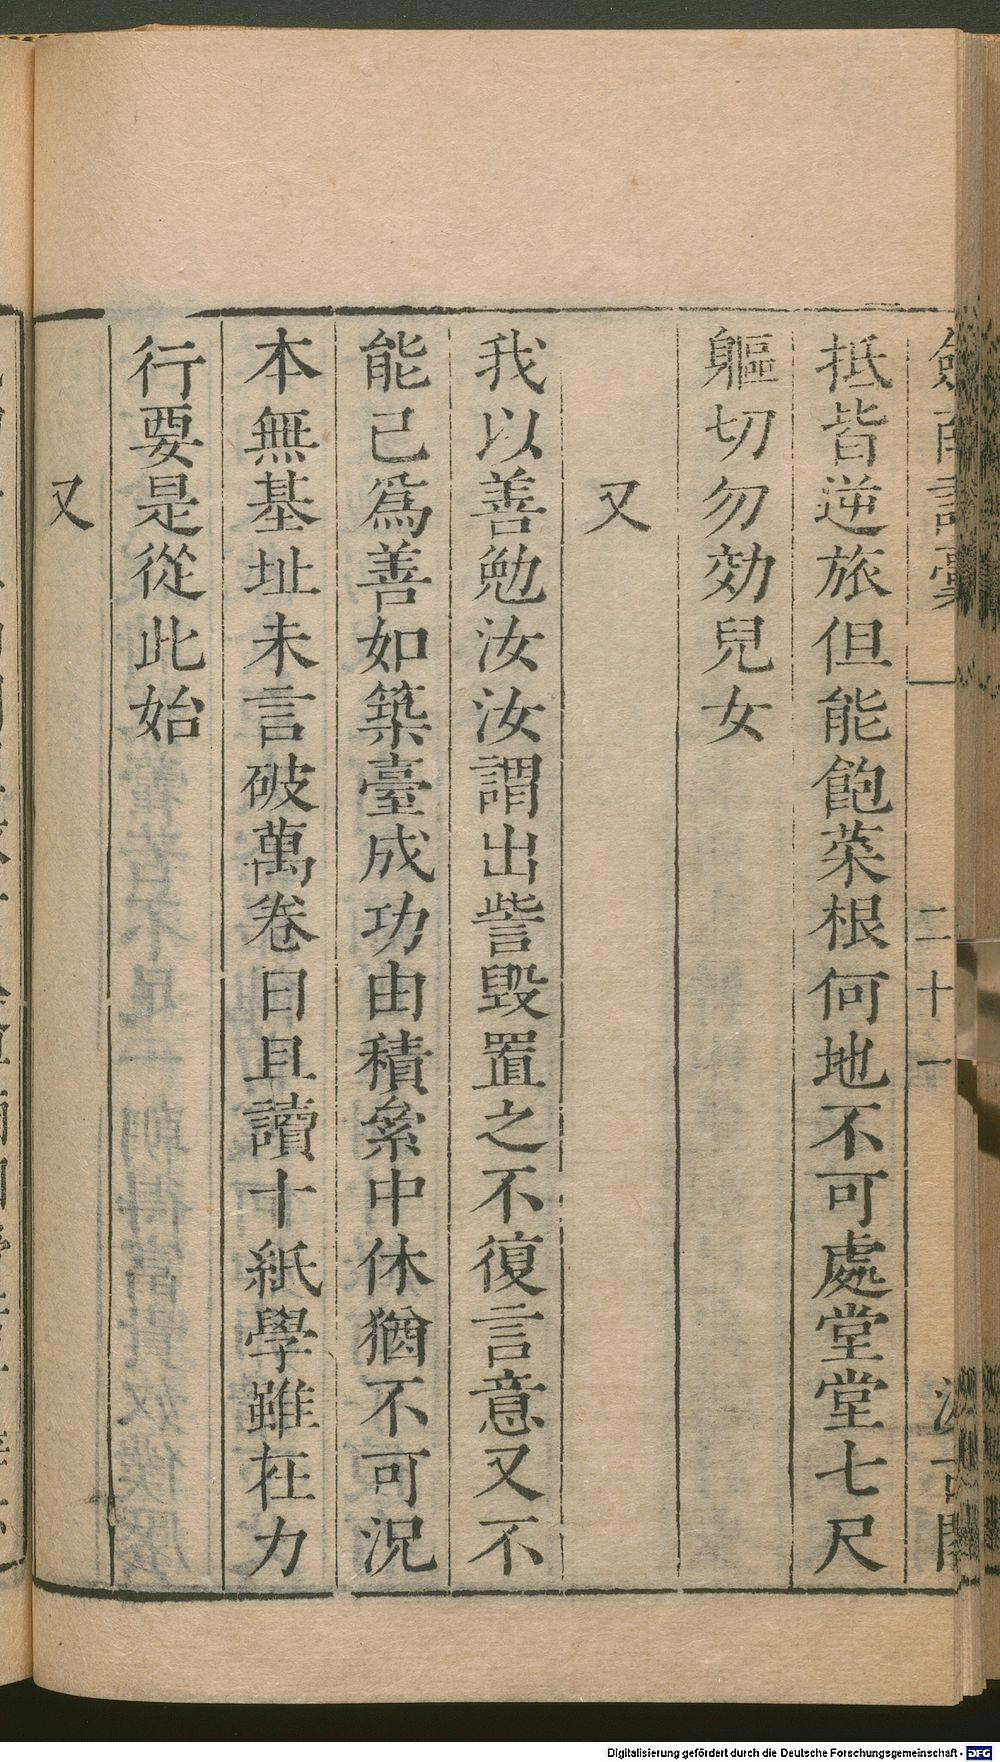 抵皆逆旅但能飽菜根何地不可處堂堂七尺
軀切勿効兒女
又
我以善勉汝汝謂出訾毀置之不復言意又不
能己爲善如築臺成功由積絫中休猶不可況
本無基址未言破萬卷日且讀十紙學雖在力
行要是從此始
又
二十一
Digitalisierung gefördert durch die Deutsche Forschungsgemeinschaft - DFG